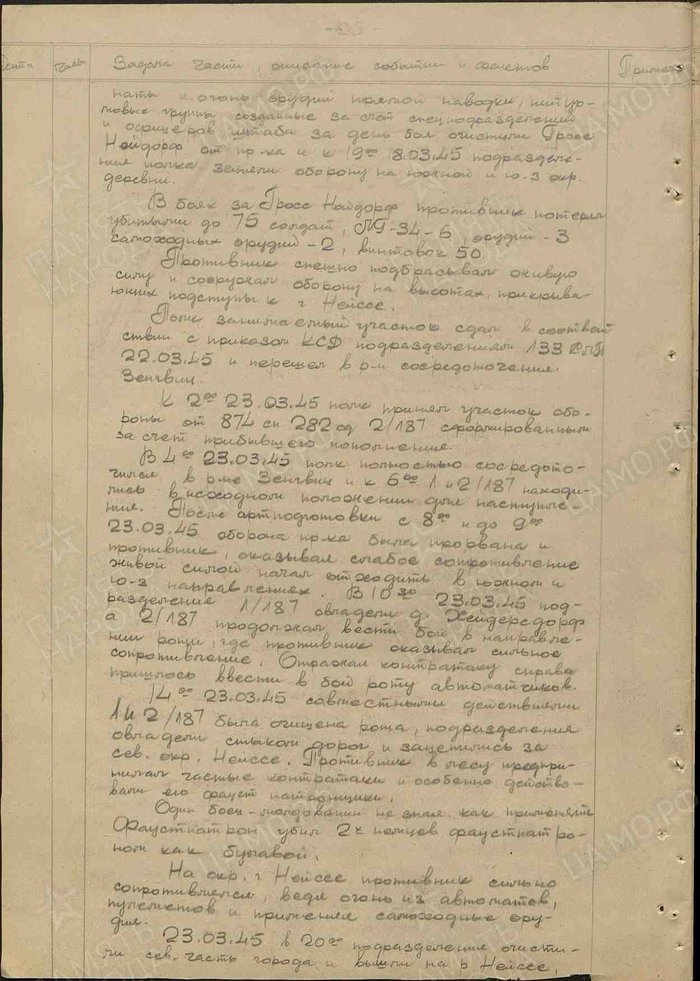 Дата часы Задача части, описание событий и фактов Примеч.
наты и огонь орудий прямой наводки, штур-
мовые группы созданные за счет спецподразделений
и офицеров штаба за день боя очистили Гросс
Нойдорф от пр-ка и к 19⁰⁰ 18.03.45 подразделе-
ния полка заняли оборону на южной и ю-з окр.
деревни.
В боях за Гросс Нойдорф противник потерял
убитыми до 75 солдат, МГ-34-6, орудий-3
самоходных орудий-2, винтовок 50.
Противник спешно подбрасывал живую
силу и сооружал оборону на высотах, прикрыва-
ющих подступы к г. Нейссе.
Полк занимаемый участок сдал в соответ
ствии с приказом КСД подразделениям 133
22.03.45 и перешел в р-н сосредоточения
Зенгвиц.
К 2⁰⁰ 23.03.45 полк принял участок обо-
роны от 874 сп 282 сд 2/187 сформированным
за счет прибывшего пополнения.
В 4⁰⁰ 23.03.45 полк полностью сосредото-
чился в р-не Зенгвиц и к 6⁰⁰ 1 и 2/187 находи-
лись в исходном положении для наступле-
ния. После артподготовки с 8⁰⁰ и до 9⁰⁰
23.03.45 оборона пр-ка была прорвана и
противник, оказывая слабое сопротивление
живой силой начал отходить в южном и
ю-з направлениях. В 10³⁰ 23.03.45 под-
разделение 1/187 овладели д. Хейдерсдорф
а 2/187 продолжал вести бой в направле-
нии рощи, где противник оказывал сильное
сопротивление. Отражая контратаку справа
пришлось ввести в бой роту автоматчиков.
14⁰⁰ 23.03.45 совместными действиями
1 и 2/187 была очищена роща, подразделения
овладели стыком дорог и зацепились за
сев. окр. Нейссе. Противник в лесу предпри-
нимал частые контратаки и особенно действо-
вали его фауст патронщики.
Один боец-молдованин не зная, как применять
Фаустпатрон убил 2х немцев фаустпатро-
ном как булавой.
На окр. г Нейссе противник сильно
сопротивлялся, ведя огонь из автоматов,
пулеметов и применял самоходные ору-
дия.
23.03.45 в 20⁰⁰ подразделение очисти-
ли сев. часть города и вышли на р Нейссе,